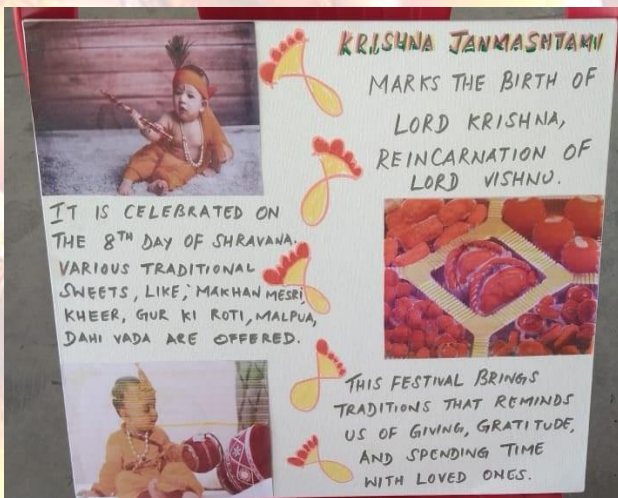 KRISHNA JANMASHTAMI
MARKS THE BIRTH OF
LORD KRISHNA,
REINCARNATION OF
LORD VISHNU.
IT IS CELEBRATED ON
THE 8TH DAY OF SHRAVANA.
VARIOUS TRADITIONAL
SWEETS, LIKE; MAKHAN MESRI,
KHEER, GUR KI ROTI, MALPUA,
DAHI VADA ARE OFFERED.
THIS FESTIVAL BRINGS
TRADITIONS THAT REMINDS
US OF GIVING, GRATITUDE,
AND SPENDING TIME
WITH LOVED ONES.